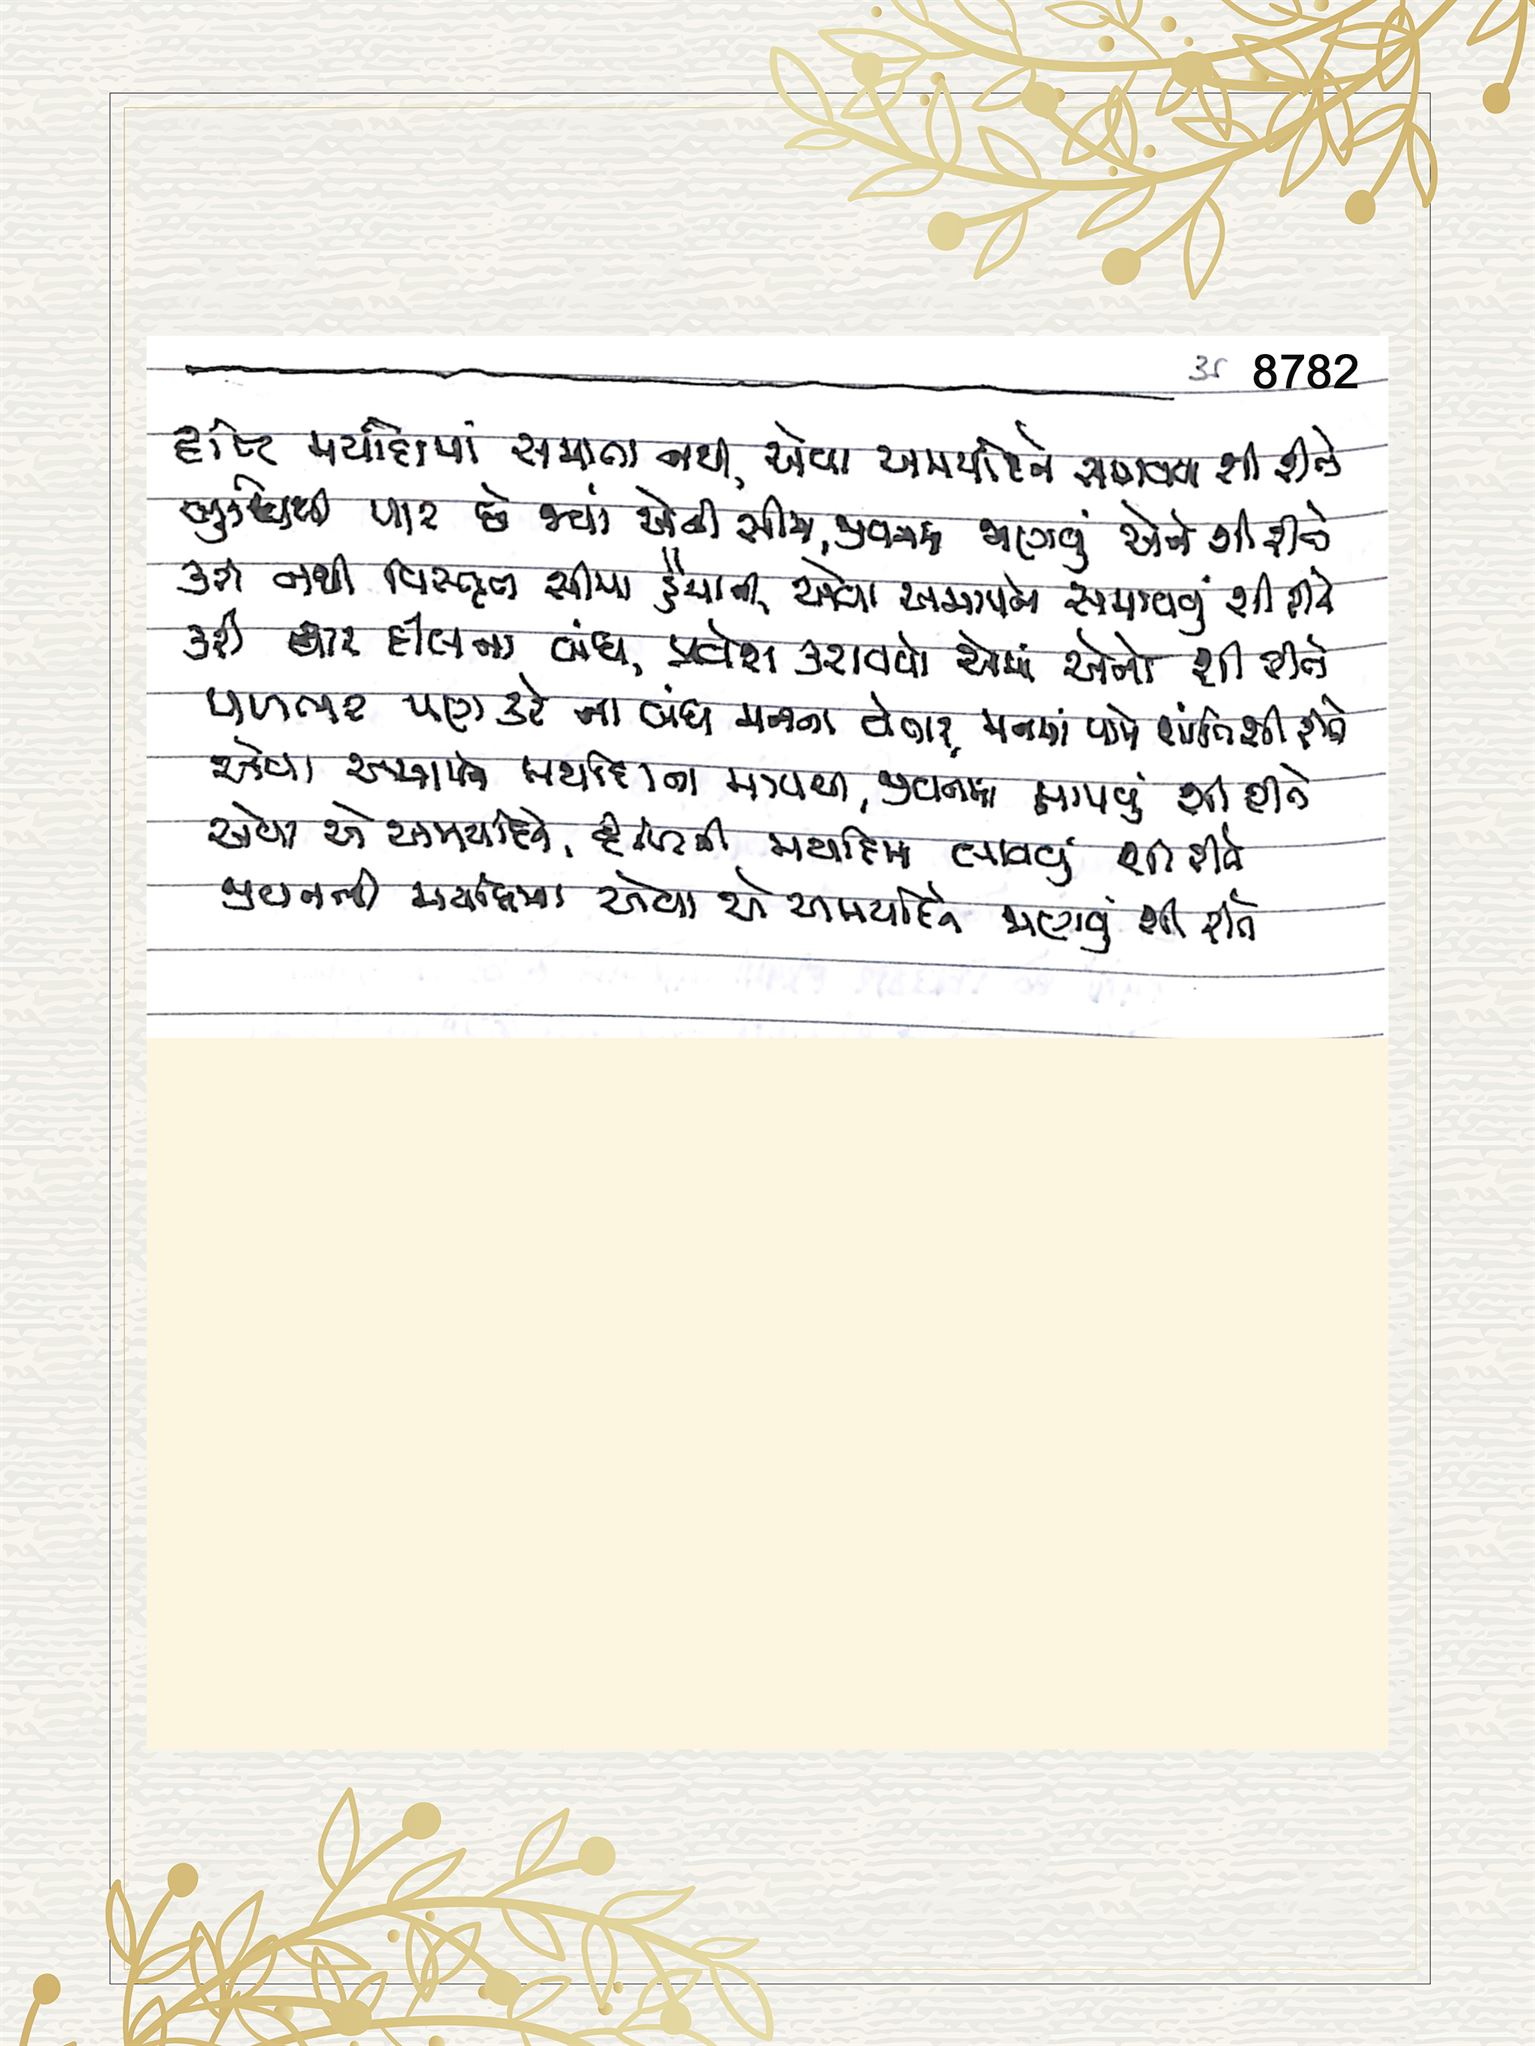 ૩૬ 8782
દૃષ્ટિ મર્યાદામાં સમાતા નથી, એવા અમર્યાદિને શી રીતે
બુદ્ધિથી પાર છે જ્યાં એની સીમા, જીવનમાં જાણવું એને શી રીતે
કરી નથી વિસ્તૃત સીમા હૈયાની, એવા અમાપને સમાવવું શી રીતે
કરી દ્વાર દીલના બંધ, પ્રવેશ કરાવવો એમાં એનો શી રીતે
પળભર પણ કરે ના બંધ મનના વેપાર, મનમાં પામે શાંતિ શી રીતે
એવા અમાપને મર્યાદાના માપથી, જીવનમાં માપવું શી રીતે
એવા એ અમર્યાદિને, મર્યાદામાં લાવવું શી રીતે
જીવનની મર્યાદામાં એવા એ અમર્યાદિને જાણવું શી રીતે